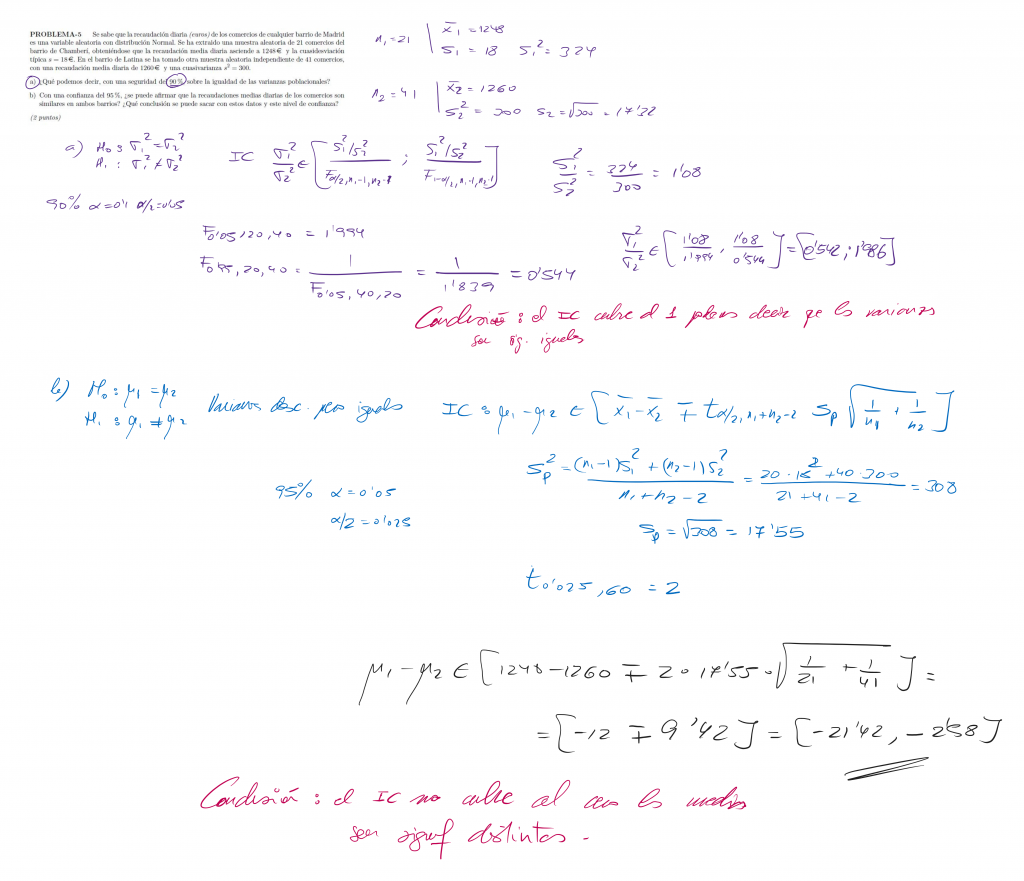 PROBLEMA-5 Se sabe que la recaudación diaria (euros) de los comercios de cualquier barrio de Madrid
es una variable aleatoria con distribución Normal. Se ha extraído una muestra aleatoria de 21 comercios del
barrio de Chamberí, obteniéndose que la recaudación media diaria asciende a 1248 € y la cuasidesviación
típica s = 18 €. En el barrio de Latina se ha tomado otra muestra aleatoria independiente de 41 comercios,
con una recaudación media diaria de 1260 € y una cuasivarianza s² = 300.
a) ¿Qué podemos decir, con una seguridad del 90 % sobre la igualdad de las varianzas poblacionales?
b) Con una confianza del 95 %, ¿se puede afirmar que la recaudaciones medias diarias de los comercios son
similares en ambos barrios? ¿Qué conclusión se puede sacar con estos datos y este nivel de confianza?
(2 puntos)
n₁ = 21 | x̄₁ = 1248
S₁ = 18 S₁² = 324
n₂ = 41 | x̄₂ = 1260
S₂² = 300 S₂ = √300 = 17'32
a) H₀ : σ₁² = σ₂²
H₁ : σ₁² ≠ σ₂²
IC σ₁²/σ₂² ∈ [ (S₁²/S₂²)/F α/2, n₁-1, n₂-1 ; (S₁²/S₂²)/F 1-α/2, n₁-1, n₂-1 ]
S₁²/S₂² = 324/300 = 1'08
90% α=0'1 α/2=0'05
F 0'05, 20, 40 = 1'994
F 0'95, 20, 40 = 1/F 0'05, 40, 20 = 1/1'839 = 0'544
σ₁²/σ₂² ∈ [ 1'08/1'994 , 1'08/0'544 ] = [0'542 ; 1'986]
Conclusión : el IC cubre al 1 podems decir que las varianzas
son sig. iguales
b) H₀ : μ₁ = μ₂
H₁ : μ₁ ≠ μ₂
Varianzas desc. pero iguales
IC : μ₁ - μ₂ ∈ [ x̄₁ - x̄₂ ∓ t α/2, n₁+n₂-2 Sp √(1/n₁ + 1/n₂) ]
Sp² = ((n₁-1)S₁² + (n₂-1)S₂²)/(n₁+n₂-2) = (20·18² + 40·300)/(21+41-2) = 308
95% α=0'05
α/2=0'025
Sp = √308 = 17'55
t 0'025, 60 = 2
μ₁ - μ₂ ∈ [ 1248-1260 ∓ 2·17'55·√(1/21 + 1/41) ] =
= [-12 ∓ 9'42] = [-21'42, -2'58]
Conclusión : el IC no cubre al cero las medias
son signif distintas.